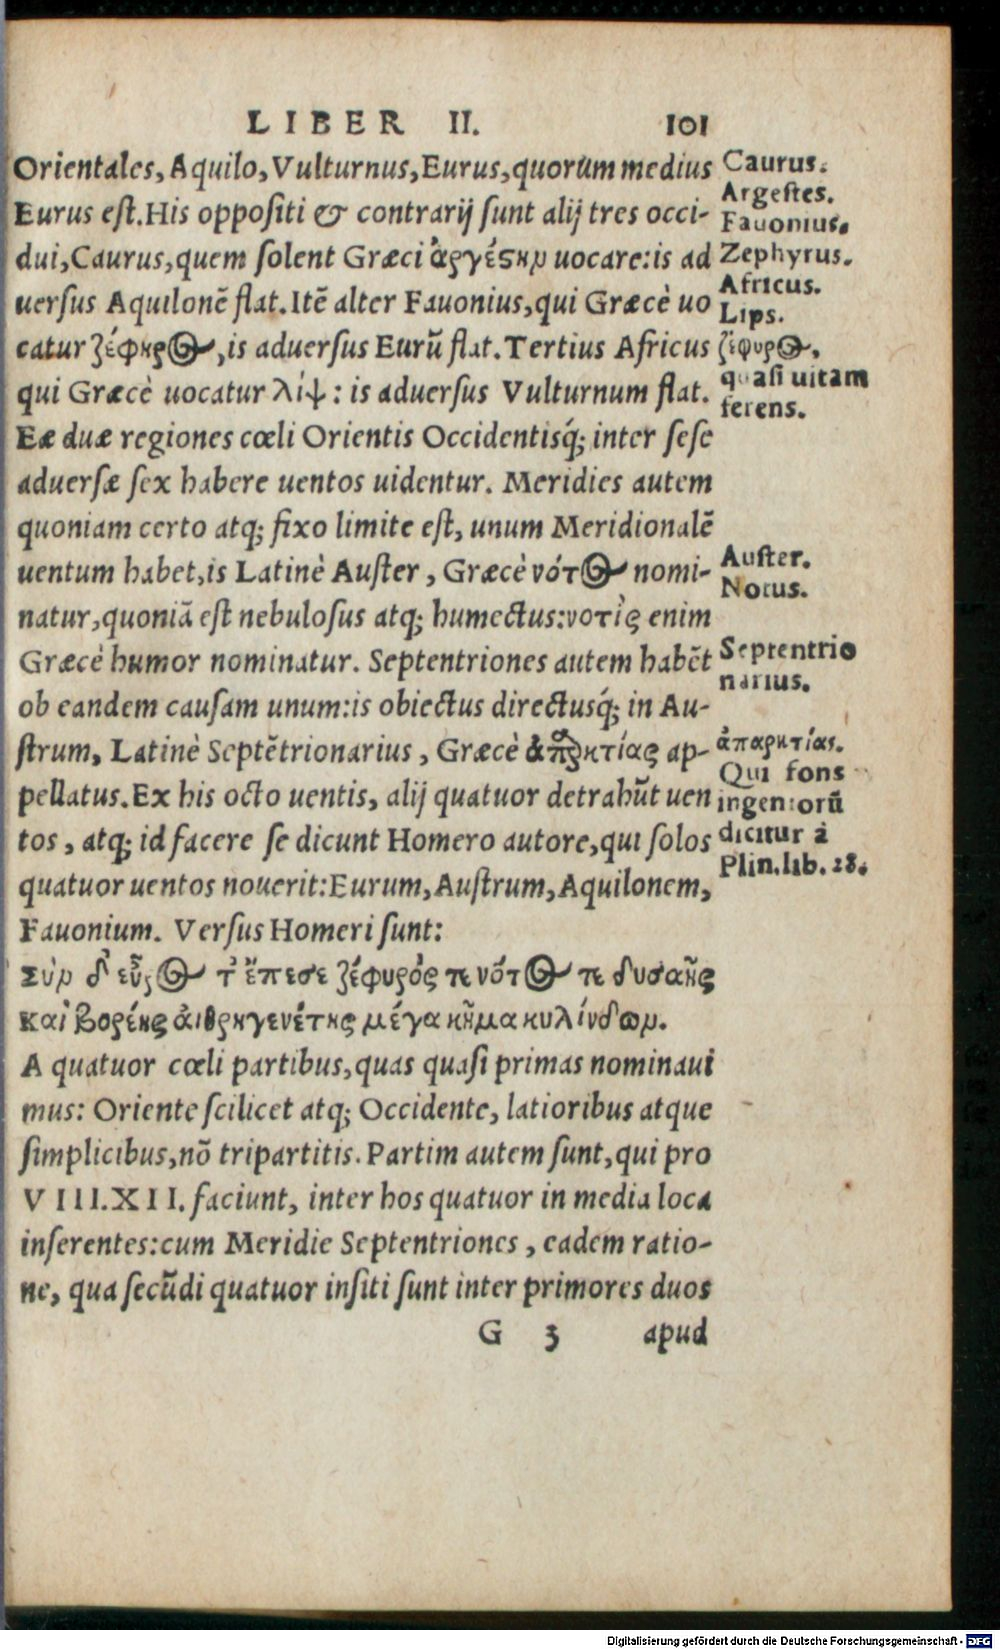 LIBER II. 101
Orientales, Aquilo, Vulturnus, Eurus, quorum medius
Eurus est. His oppositi & contrarij sunt alij tres occi-
dui, Caurus, quem solent Græci ἀργέστην uocare: is ad
uersus Aquilonẽ flat. Itẽ alter Fauonius, qui Græcè uo
catur ζέφηρος, is aduersus Eurũ flat. Tertius Africus
qui Græcè uocatur λίψ: is aduersus Vulturnum flat.
Eæ duæ regiones cœli Orientis Occidentisq́; inter sese
aduersæ sex habere uentos uidentur. Meridies autem
quoniam certo atq; fixo limite est, unum Meridionalẽ
uentum habet, is Latinè Auster, Græcè νότος nomi-
natur, quoniã est nebulosus atq; humectus: νοτὶς enim
Græcè humor nominatur. Septentriones autem habẽt
ob eandem causam unum: is obiectus directusq́; in Au-
strum, Latinè Septẽtrionarius, Græcè ἀπαρκτίας ap-
pellatus. Ex his octo uentis, alij quatuor detrahũt uen
tos, atq; id facere se dicunt Homero autore, qui solos
quatuor uentos nouerit: Eurum, Austrum, Aquilonem,
Fauonium. Versus Homeri sunt:
Σὺν δ' εὖρος τ' ἔπεσε ζέφυρός τε νότος τε δυσαὴς
Καὶ βορέης αἰθρηγενέτης μέγα κῆμα κυλίνδων.
A quatuor cœli partibus, quas quasi primas nominaui
mus: Oriente scilicet atq; Occidente, latioribus atque
simplicibus, nõ tripartitis. Partim autem sunt, qui pro
VIII. XII. faciunt, inter hos quatuor in media loca
inserentes: cum Meridie Septentriones, eadem ratio-
ne, qua secũdi quatuor insiti sunt inter primores duos
G 3 apud
Caurus.
Argestes.
Fauonius.
Zephyrus.
Africus.
Lips.
ζέφυρος,
quasi uitam
ferens.
Auster.
Notus.
Septentrio
narius.
ἀπαρκτίας.
Qui fons
ingeniorũ
dicitur à
Plin. lib. 28.
Digitalisierung gefördert durch die Deutsche Forschungsgemeinschaft - DFG